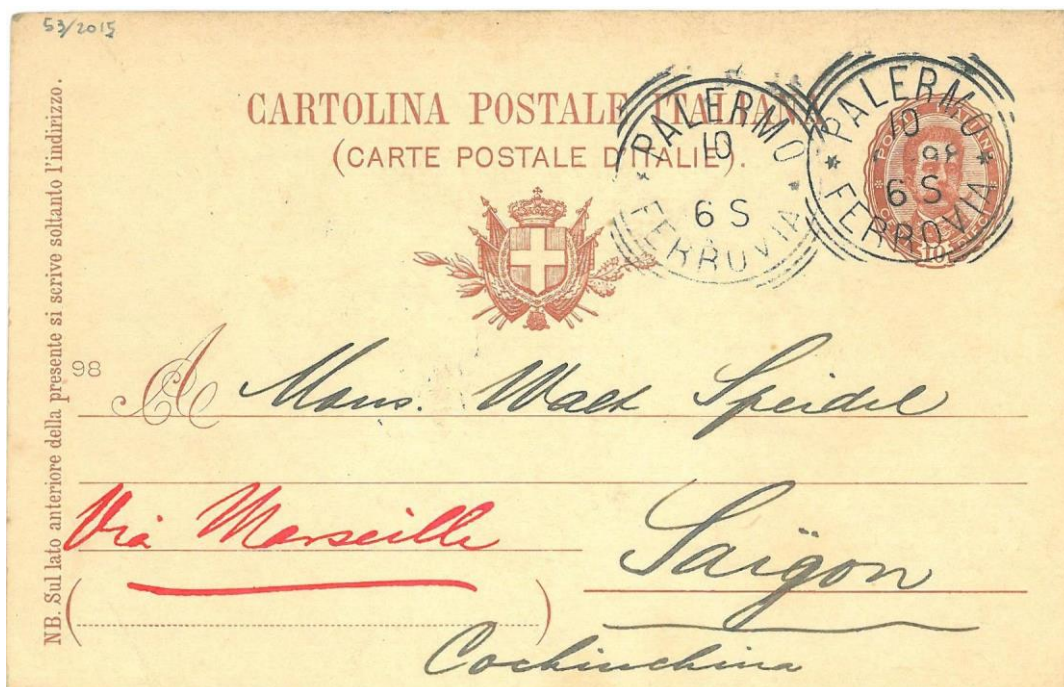 53/2015
NB. Sul lato anteriore della presente si scrive soltanto l'indirizzo.
CARTOLINA POSTALE ITALIANA
(CARTE POSTALE D'ITALIE).
PALERMO
10
6 S
FERROVIA
PALERMO
10
98
6 S
FERROVIA
10
98
A Mons. Walt Speidel
Via Marseille
Saïgon
Cochinchina